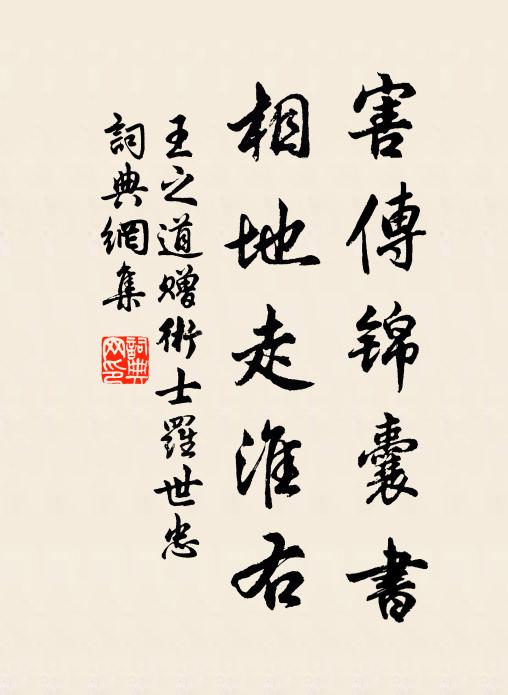 害傳錦囊書
相地走淮右
王之道贈術士羅世忠
詞典網集
詞典網印